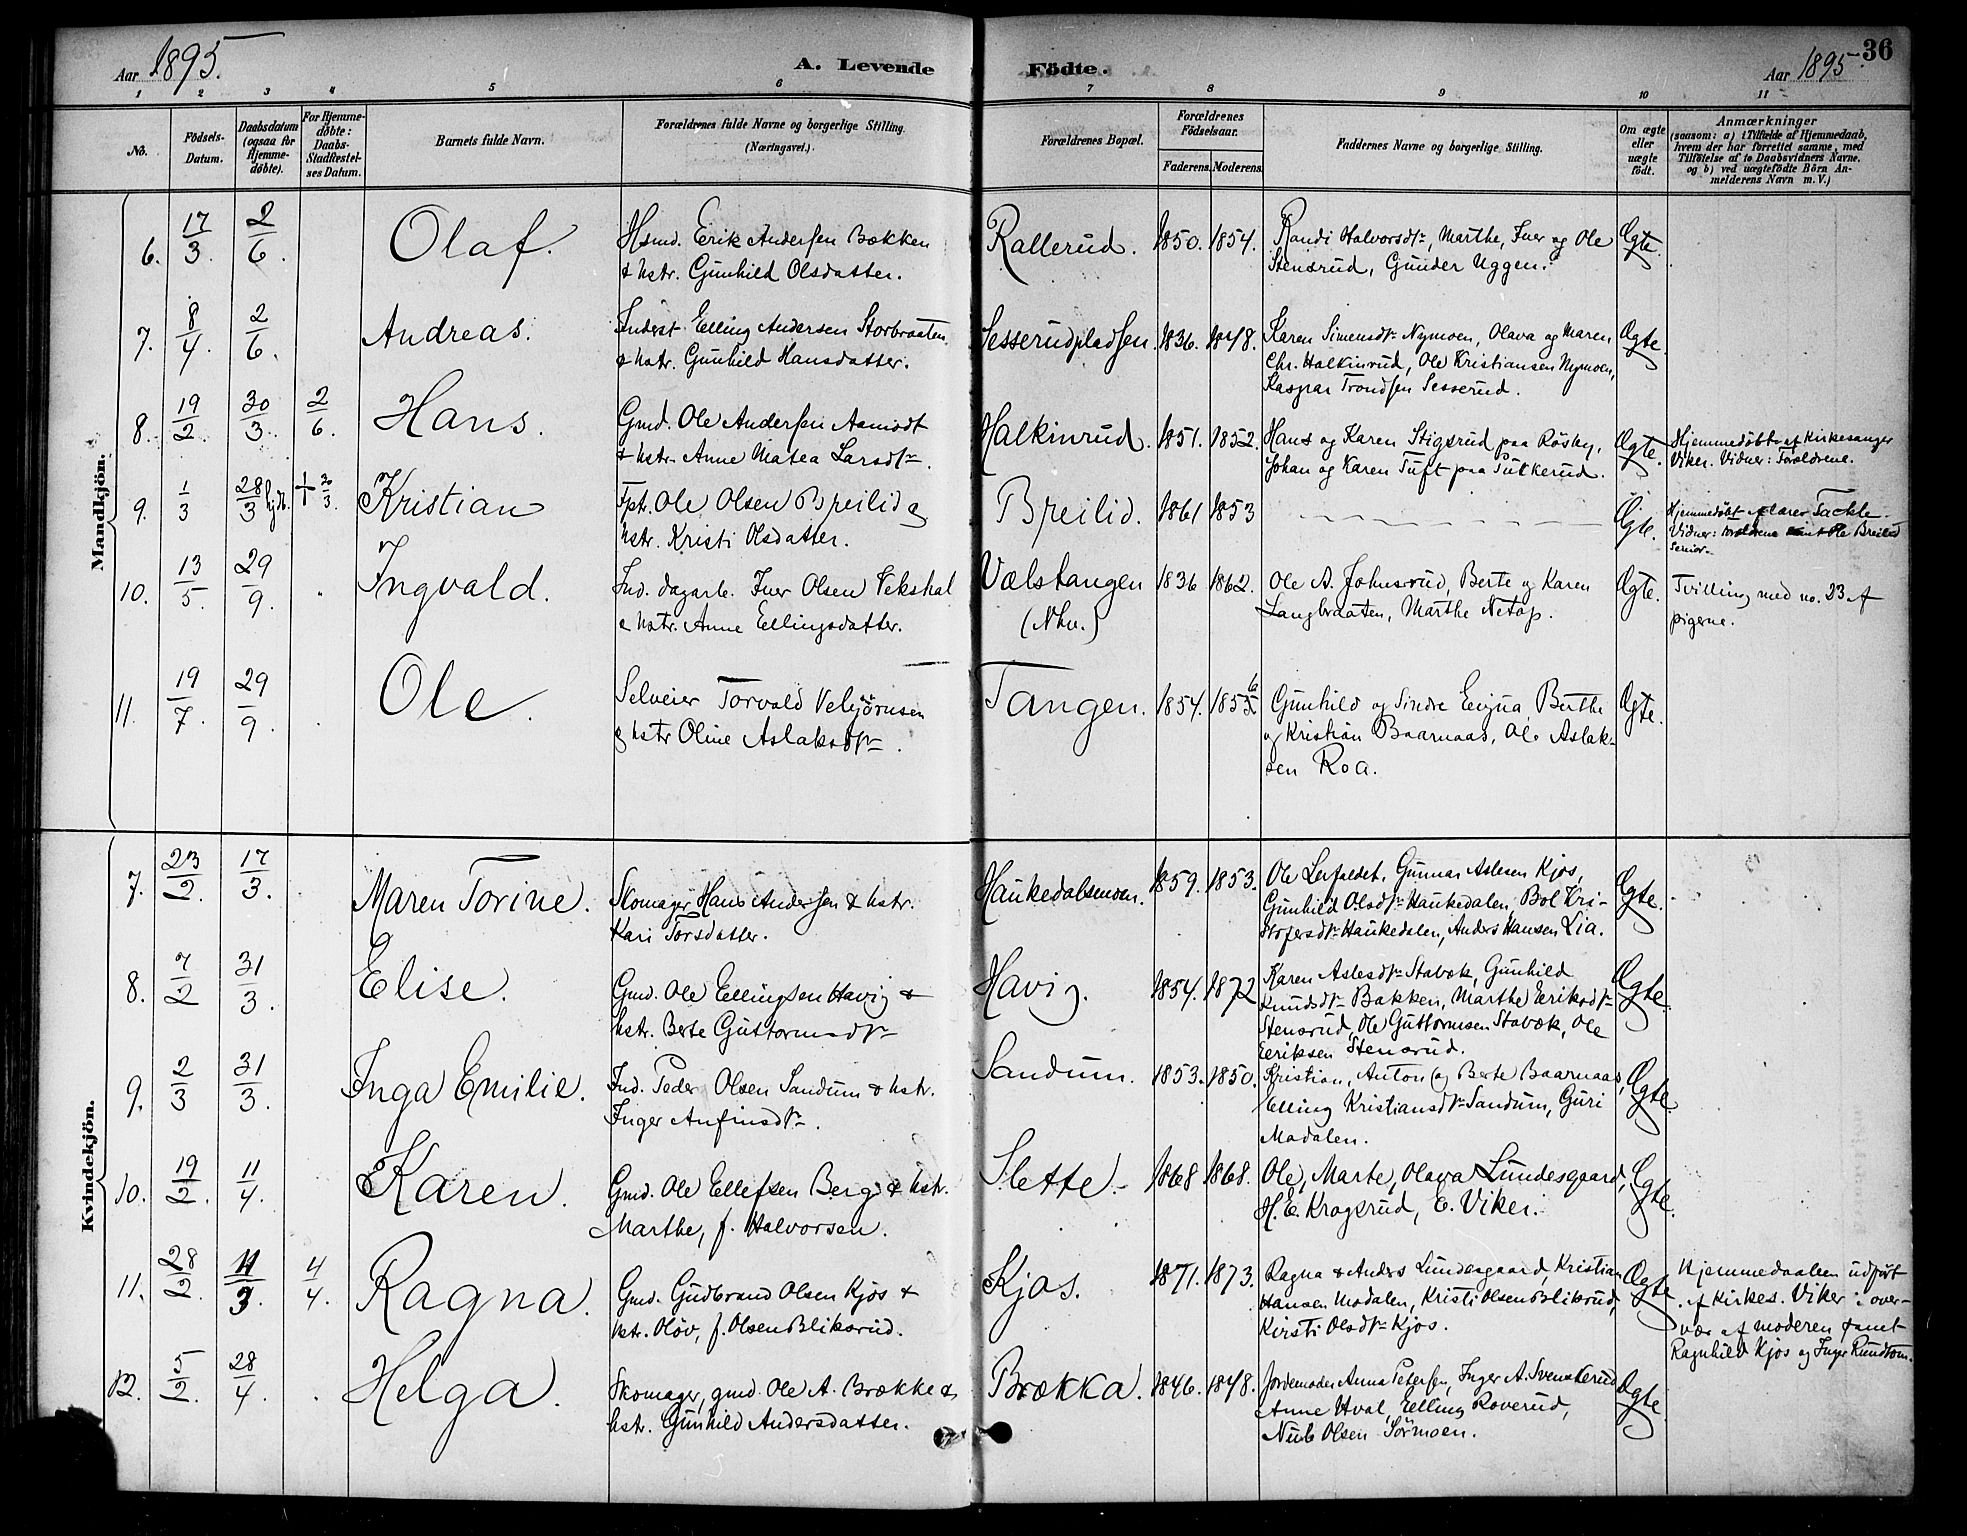 Aar 1895.
A. Levende Födte.
Aar 1895.
36
1 2 3 4 5 6 7 8 9 10 11
No.
Födsels-Datum.
Daabsdatum (ogsaa for Hjemme-döbte).
For Hjemme-döbte: Daabs-Stadfæstel-ses Datum.
Barnets fulde Navn.
Forældrenes fulde Navne og borgerlige Stilling. (Næringsvei.)
Forældrenes Bopæl.
Forældrenes Födselsaar.
Faderens. Moderens.
Faddernes Navne og borgerlige Stilling.
Om ægte eller uægte født.
Anmærkninger
(saasom: a) i Tilfælde af Hjemmedaab, hvem der har forrettet samme, med Tilföielse af to Daabsvidners Navne. og b) ved uægtefödte Börn An-melderens Navn m.V.)
Mandkjön.
6. 17/3. 2/6. Olaf. Hsmd. Erik Andersen Bækken
& hstr. Gunhild Olsdatter.
Rallerud. 1850. 1854. Randi Halvorsdtr, Marthe, Iver og Ole
Stensrud, Gunder Uggen. Ægte.
7. 8/4. 2/6. Andreas. Inderst Elling Andersen Storbraaten
& hstr. Gunhild Hansdatter.
Sesserudpladsen. 1836. 1848. Karen Simensdtr Nymoen, Olava og Maren
Chr. Halkinrud, Ole Kristiansen Nymoen,
Kaspar Trondsen Sesserud. Ægte.
8. 19/2. 30/3. 2/6. Hans. Gmd. Ole Andersen Aamodt
& hstr. Anne Matea Larsdtr.
Halkinrud. 1851. 1852. Hans og Karen Stigsrud paa Rösby,
Johan og Karen Tuft paa Putkerud. Ægte.
Hjemmedöbt af Kirkesanger
Viker. Vidner: Forældrene.
9. 1/3 28/3 hjdb. + 30/3. Kristian Fpt. Ole Olsen Breilid og
hstr. Kristi Olsdatter.
Breilid. 1861 1853 Ægte.
Hjemmedöbt af lærer Tackle.
Vidner: forældrene samt Ole Breilid
senior.
10. 13/5. 29/9. Ingvald. Ind. dagarb. Iver Olsen Vekshal
& hstr. Anne Ellingsdatter.
Vælstangen
(Nhv.)
1836 1862. Ole A. Johnsrud, Berte og Karen
Langbraaten, Marthe Netop. Ægte.
Tvilling med no. 23 af
pigerne.
11. 19/7. 29/9. Ole. Selveier Torvald Vebjörnsen
& hstr Oline Aslaksdtr.
Tangen. 1854. 1855 6 Gunhild og Sindre Enjua, Berthe
og Kristian Baarnaas, Ole Aslak-
sen Roa. Ægte.
Kvindekjön.
7. 23/12. 17/3. Maren Torine. Skomager Hans Andersen & hstr.
Kari Torsdatter.
Haukedalsmoen. 1859. 1853. Ole Lerfaldet, Gunnar Aslesen Kjös,
Gunhild Olsdtr Haukedalen, Bol Kri-
stofersdtr Haukedalen, Anders Hansen Lia. Ægte.
8. 7/2 31/3. Elise. Gmd. Ole Ellingsen Havig &
hstr. Berte Guttormsdtr
Havig. 1854. 1872 Karen Aslesdtr Stavæk, Gunhild
Knudsdtr Bakken, Marthe Eeriksdtr
Stensrud, Ole Guttormsen Stavæk, Ole
Eeriksen Stensrud. Ægte.
9. 2/3 31/3. Inga Emilie. Ind. Peder Olsen Sandum & hstr.
Inger Anfinsdtr.
Sandum. 1853. 1850. Kristian, Anton og Berte Baarnaas,
Elling Kristiansdtr Sandum, Guri
Modalen. Ægte.
10. 19/2. 11/4. Karen. Gmd. Ole Ellefsen Berg & hstr.
Marthe, f. Halvorsen.
Slette. 1868 1868. Ole, Marte, Olava Lundesgaard,
H. E. Kragsrud, E. Viker. Ægte.
11. 28/2. 11/3. 4/4. Ragna. Gmd. Gudbrand Olsen Kjös &
hstr. Olöv, f. Olsen Bliksrud.
Kjös. 1871. 1873. Ragna & Anders Lundesgaard, Kristian
Hansen Modalen, Kristi Olsen Bliksrud,
Kirsti Olsdtr Kjös. Ægte
Hjemmedaaben udfört
af Kirkes. Viker i over-
vær af moderen samt
Ragnhild Kjös og Inger Rundtom.
12. 25/2. 28/4. Helga. Skomager, gmd. Ole A. Brække &
hstr. Gunhild Andersdatter.
Brækka. 1846. 1848. Jordemoder Anna Petersen, Inger A. Svenskerud
Anne Hval, Elling Roverud,
Niels Olsen Sörmoen. Ægte.